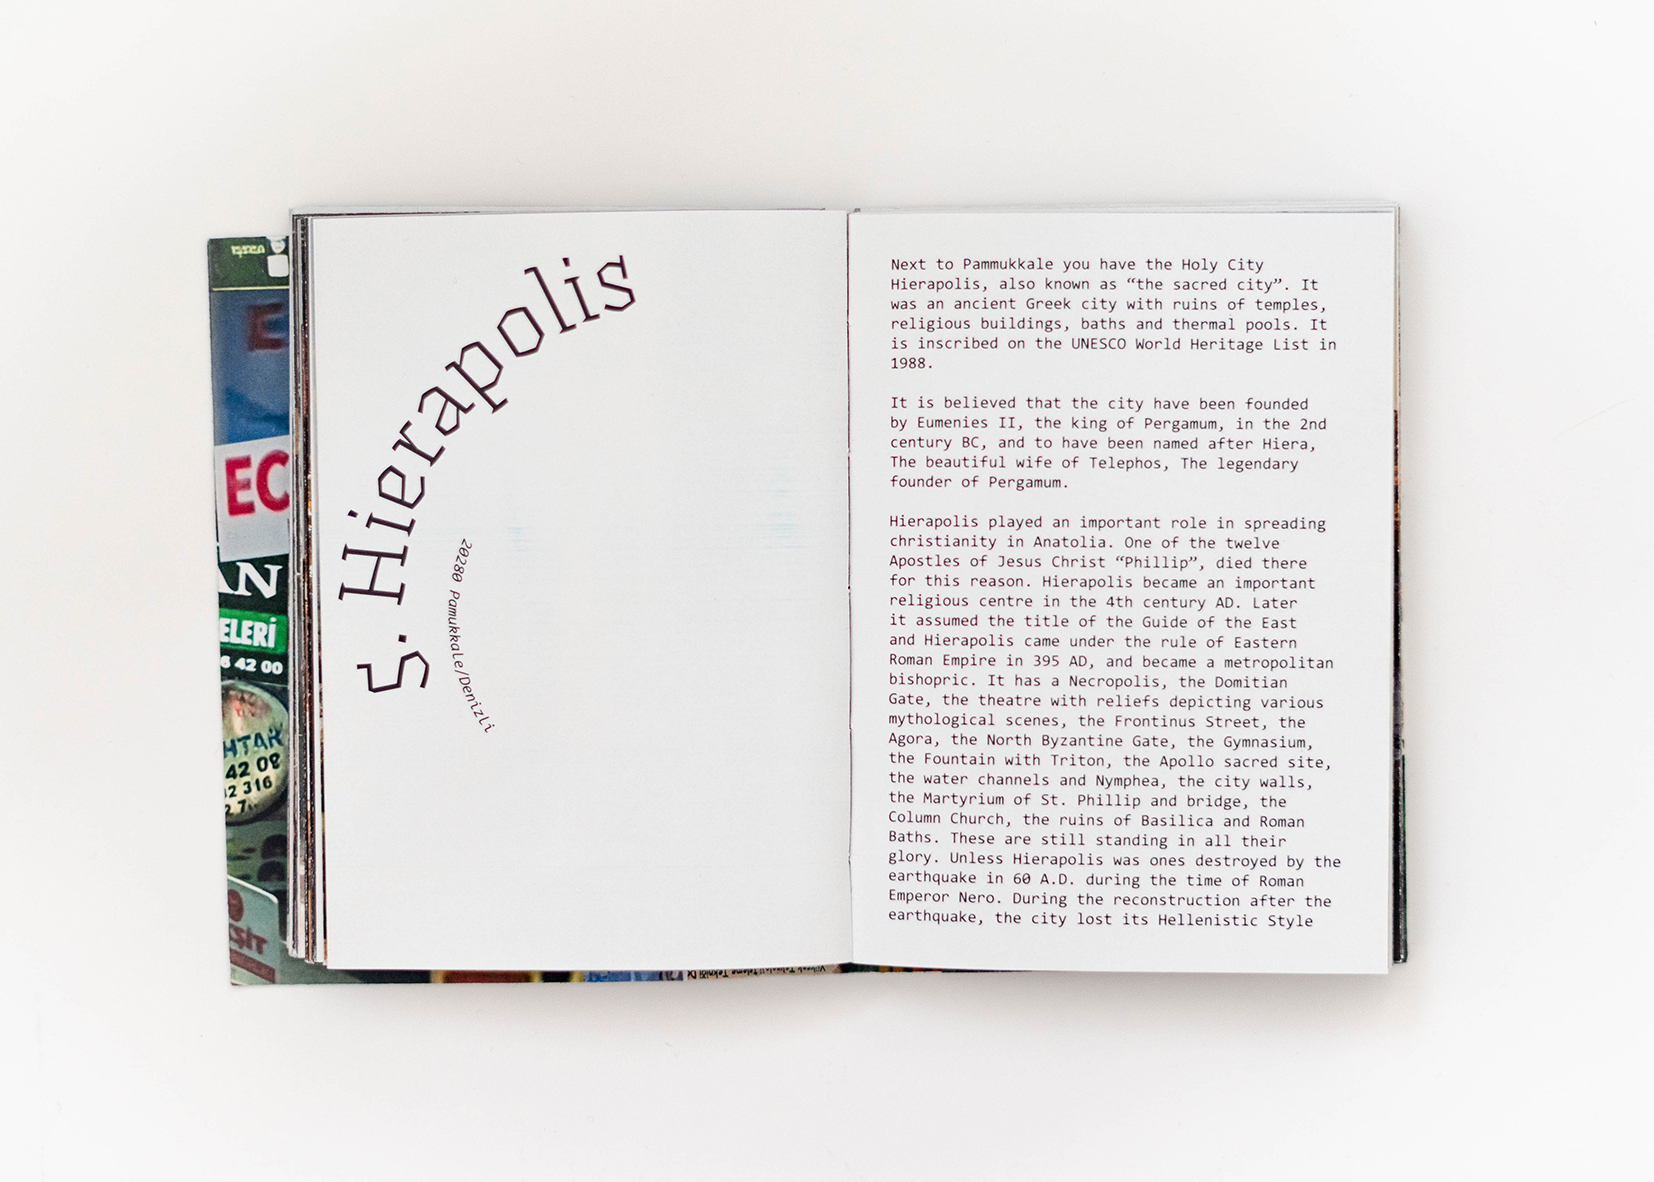 5. Hierapolis
20280 Pamukkale/Denizli
Next to Pammukkale you have the Holy City
Hierapolis, also known as “the sacred city”. It
was an ancient Greek city with ruins of temples,
religious buildings, baths and thermal pools. It
is inscribed on the UNESCO World Heritage List in
1988.
It is believed that the city have been founded
by Eumenies II, the king of Pergamum, in the 2nd
century BC, and to have been named after Hiera,
The beautiful wife of Telephos, The legendary
founder of Pergamum.
Hierapolis played an important role in spreading
christianity in Anatolia. One of the twelve
Apostles of Jesus Christ “Phillip”, died there
for this reason. Hierapolis became an important
religious centre in the 4th century AD. Later
it assumed the title of the Guide of the East
and Hierapolis came under the rule of Eastern
Roman Empire in 395 AD, and became a metropolitan
bishopric. It has a Necropolis, the Domitian
Gate, the theatre with reliefs depicting various
mythological scenes, the Frontinus Street, the
Agora, the North Byzantine Gate, the Gymnasium,
the Fountain with Triton, the Apollo sacred site,
the water channels and Nymphea, the city walls,
the Martyrium of St. Phillip and bridge, the
Column Church, the ruins of Basilica and Roman
Baths. These are still standing in all their
glory. Unless Hierapolis was ones destroyed by the
earthquake in 60 A.D. during the time of Roman
Emperor Nero. During the reconstruction after the
earthquake, the city lost its Hellenistic Style
E
EC
AN
ELERİ
6 42 00
HTAR
42 08
2 316
2 7
ŞİT